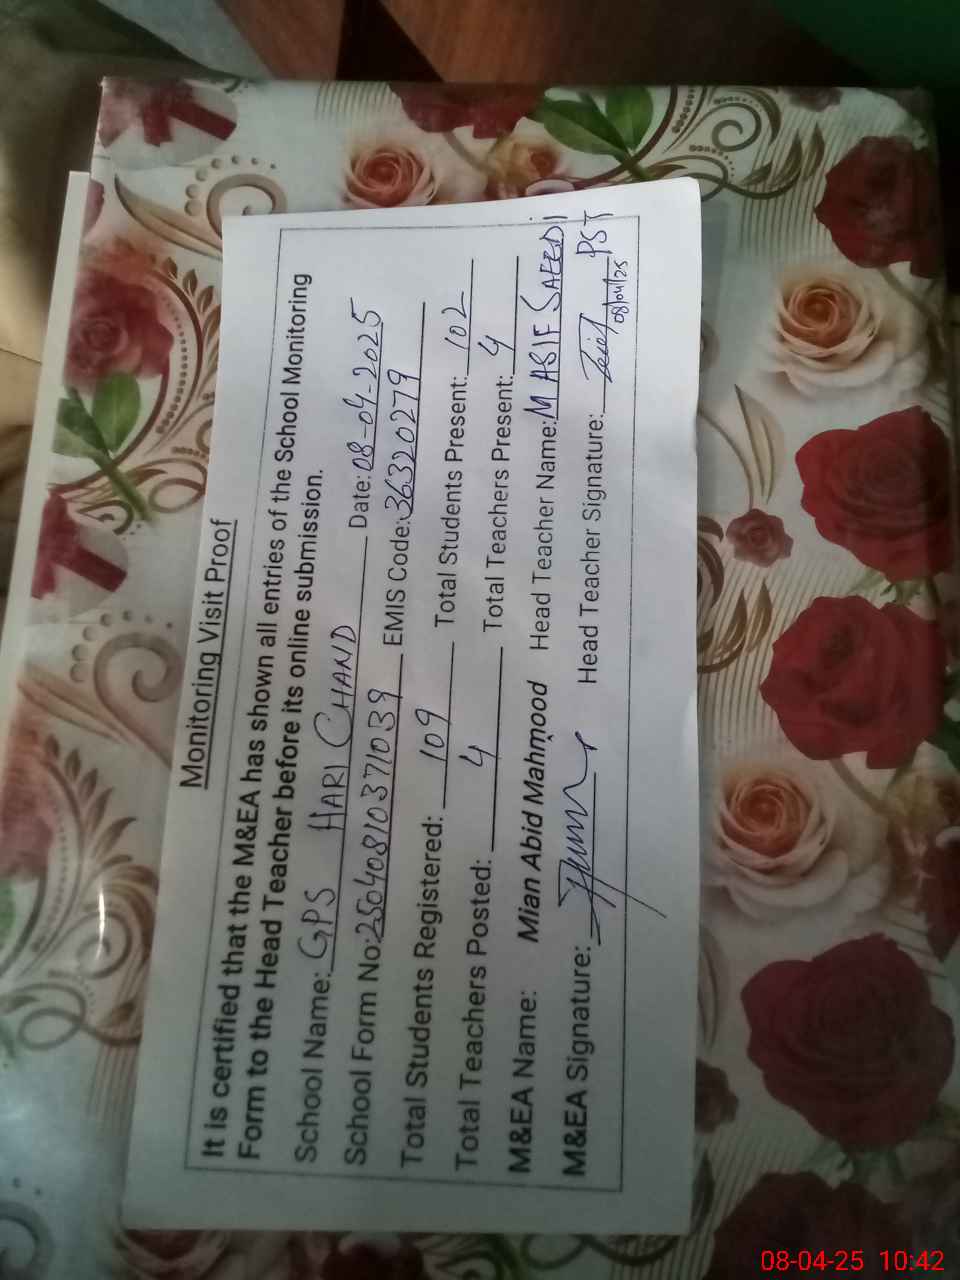 Monitoring Visit Proof
It is certified that the M&EA has shown all entries of the School Monitoring
Form to the Head Teacher before its online submission.
School Name: GPS HARI CHAND Date: 08-04-2025
School Form No: 250408103371039 EMIS Code: 36320279
Total Students Registered: 109 Total Students Present: 102
Total Teachers Posted: 4 Total Teachers Present: 4
M&EA Name: Mian Abid Mahmood Head Teacher Name: M ASIF SAEEDI
M&EA Signature: Head Teacher Signature: PST
08/04/25
08-04-25 10:42